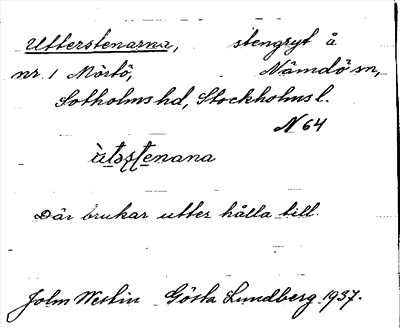 Utterstenarna, stengryt å
nr. 1 Mörtö, Nämdö sn,
Sotholms hd, Stockholms l.
N 64
ùtǝsʈenana
Där brukar utter hålla till.
John Westin Gösta Lundberg 1937.